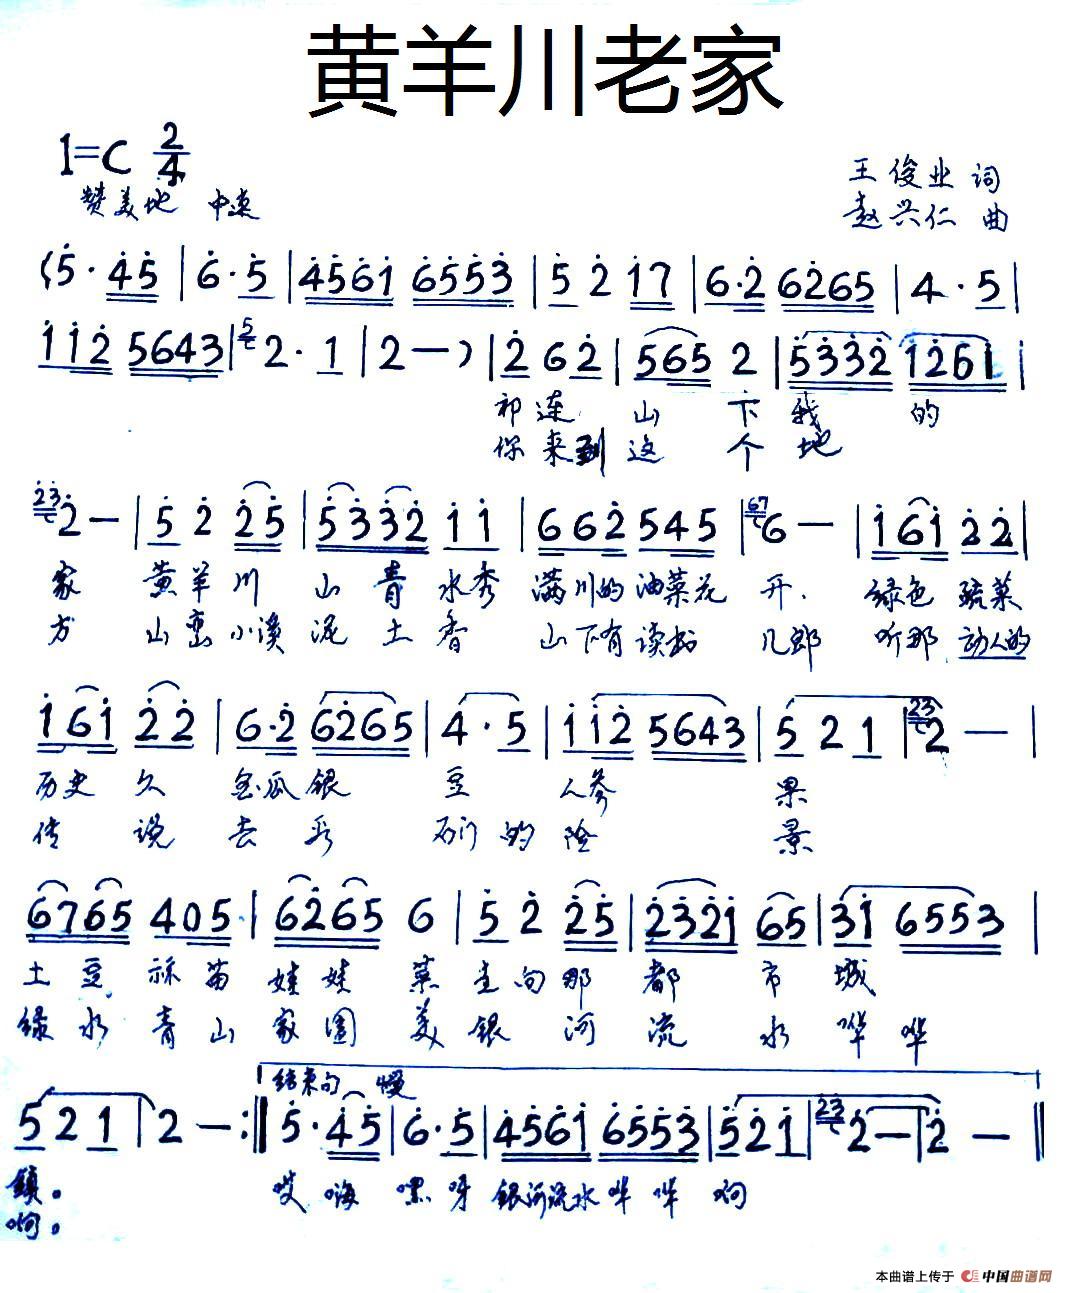 黄羊川老家
1=C 2/4
王俊业 词
赞美地 中速
赵兴仁 曲
(5·45 | 6·5 | 4561 6553 | 5 2 17 | 6·2 6265 | 4·5 |
112 5643 | 5 2·1 | 2—) | 2 6 2 | 565 2 | 5332 1261 |
祁连 山 下 我 的
你来到 这 个 地
23 2— | 5 2 25 | 5332 11 | 662 545 | 67 6— | 161 22 |
家 黄羊川 山青水秀 满川的油菜花 开. 绿色 蔬菜
方 山峦小溪 泥土香 山下有读书 儿郎 听那 动人的
161 22 | 6·2 6265 | 4·5 | 112 5643 | 5 2 1 | 23 2— |
历史 久 金瓜银 豆 人参 果
传 说 去 石门 的 险 景
6765 405 | 6265 6 | 5 2 25 | 2321 65 | 31 6553 |
土豆 苗 娃娃 菜 走向那 都 市 城
绿水青山 家园 美 银 河 流 水 哗 哗
结束句 慢
5 2 1 | 2— :‖ 5·45 | 6·5 | 4561 6553 | 5 2 1 | 23 2— | 2— ‖
镇。 哎 嗨 嘿 呀 银河流水 哗 哗 啊
啊。
本曲谱上传于 中国曲谱网